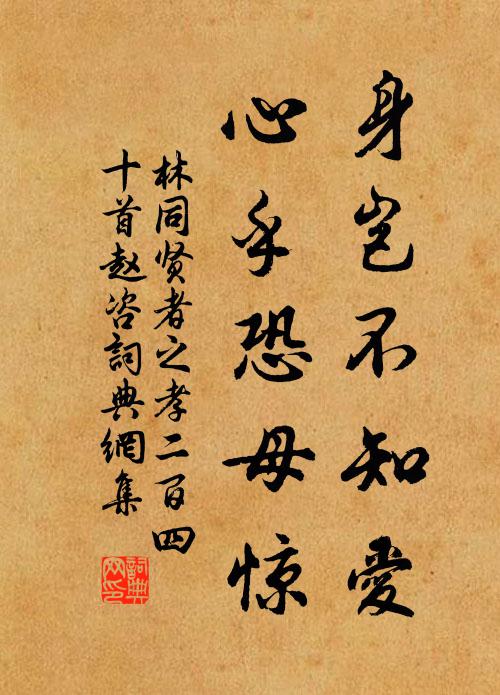 身岂不知愛
心乎恐母惊
林同贤者之孝二百四
十首赵咨詞典網集
詞典网印